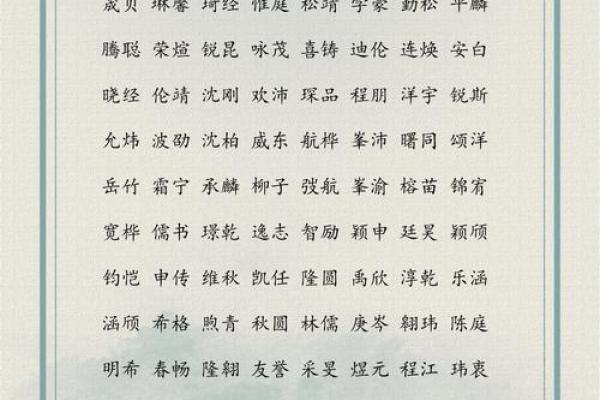 晟贝 琳馨 琦经 惟庭 松靖 学豪 勤松 平麟
腾聪 荣煊 锐昆 咏茂 喜铸 迪伦 连焕 安白
晓经 伦靖 沈刚 欢沛 琛品 程朋 洋宇 锐斯
允炜 波劭 沈柏 威东 航桦 峯沛 曙同 颂洋
岳竹 霜宁 承麟 柳子 弢航 峯渝 榕苗 锦宥
宽桦 儒书 璟乾 逸志 智励 颖申 廷昊 颖颀
钧恺 申传 维秋 凯任 隆圆 禹欣 淳乾 乐涵
涵颀 希格 煦青 秋圆 林儒 庚岑 翱玮 陈庭
明希 春畅 隆翱 友誉 采旻 煜元 程江 玮衷